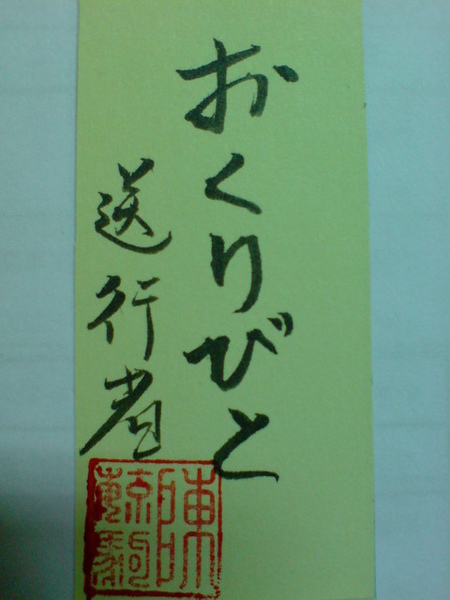 おくりびと
送行者
陳